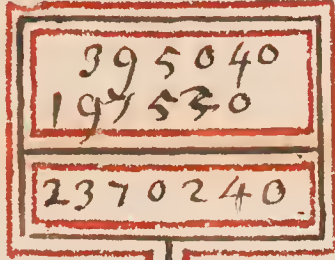 395040
197520
2370240